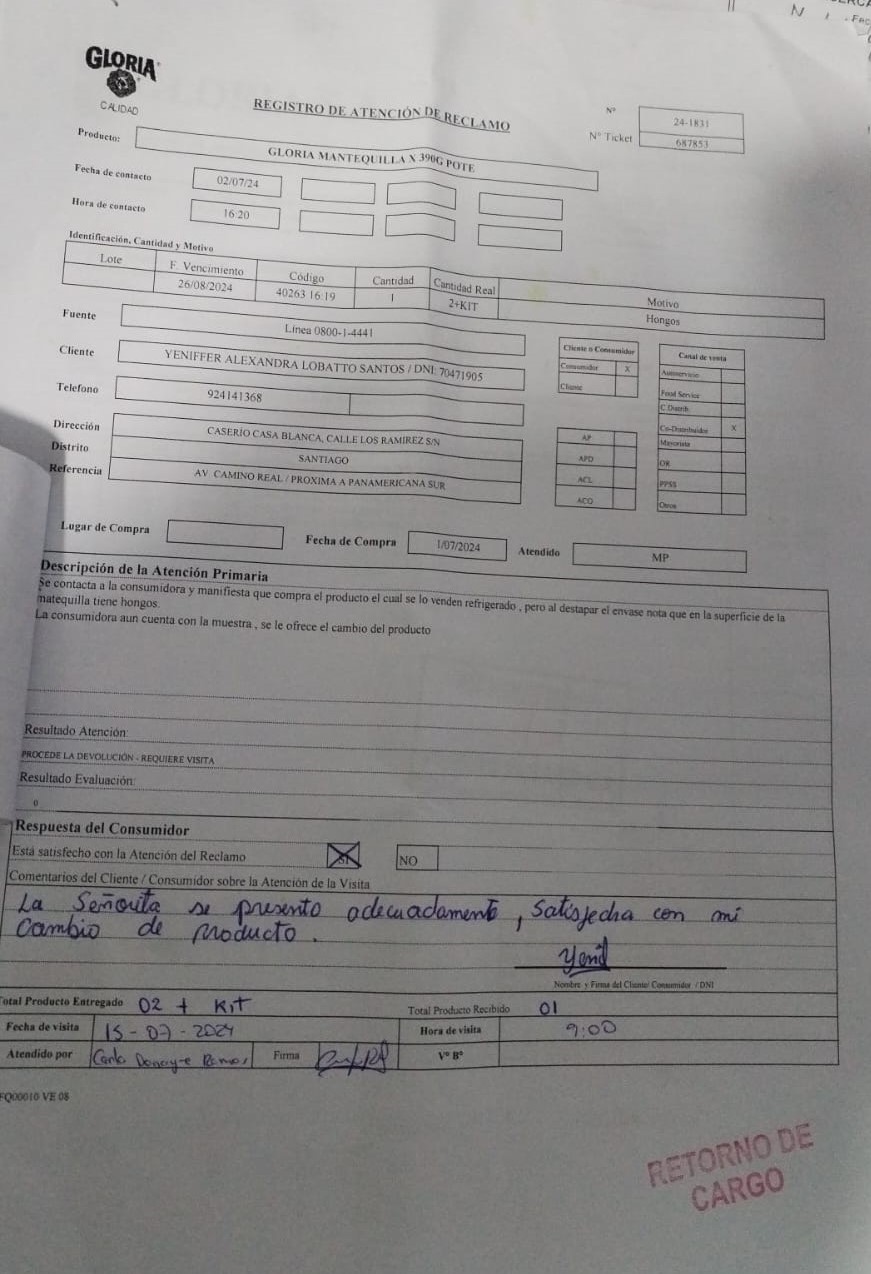 GLORIA
CALIDAD
REGISTRO DE ATENCIÓN DE RECLAMO
Nº 24-1831
Nº Ticket 687853
Producto: GLORIA MANTEQUILLA X 390G POTE
Fecha de contacto 02/07/24
Hora de contacto 16:20
Identificación, Cantidad y Motivo
Lote F. Vencimiento Código Cantidad Cantidad Real Motivo
26/08/2024 40263 16:19 1 2+KIT Hongos
Fuente Línea 0800-1-4441
Cliente YENIFFER ALEXANDRA LOBATTO SANTOS / DNI: 70471905
Telefono 924141368
Dirección CASERÍO CASA BLANCA, CALLE LOS RAMIREZ S/N
Distrito SANTIAGO
Referencia AV. CAMINO REAL / PROXIMA A PANAMERICANA SUR
Cliente o Consumidor
Consumidor X
Cliente
AP
APD
ACL
ACO
Canal de venta
Autoservicio
Food Service
C.Distrib.
Co-Distribuidor X
Mayorista
OR
PPSS
Otros
Lugar de Compra Fecha de Compra 1/07/2024 Atendido MP
Descripción de la Atención Primaria
Se contacta a la consumidora y manifiesta que compra el producto el cual se lo venden refrigerado , pero al destapar el envase nota que en la superficie de la
matequilla tiene hongos.
La consumidora aun cuenta con la muestra , se le ofrece el cambio del producto
Resultado Atención:
PROCEDE LA DEVOLUCIÓN - REQUIERE VISITA
Resultado Evaluación:
0
Respuesta del Consumidor
Está satisfecho con la Atención del Reclamo SI NO
Comentarios del Cliente / Consumidor sobre la Atención de la Visita
La Señorita se presento adecuadamente, satisfecha con mi
cambio de producto.
Yenif
Nombre y Firma del Cliente/ Consumidor / DNI
Total Producto Entregado 02 + Kit Total Producto Recibido 01
Fecha de visita 15-07-2024 Hora de visita 9:00
Atendido por Carla Donayre Ramos Firma VºBº
FQ00010 VE 08
RETORNO DE
CARGO